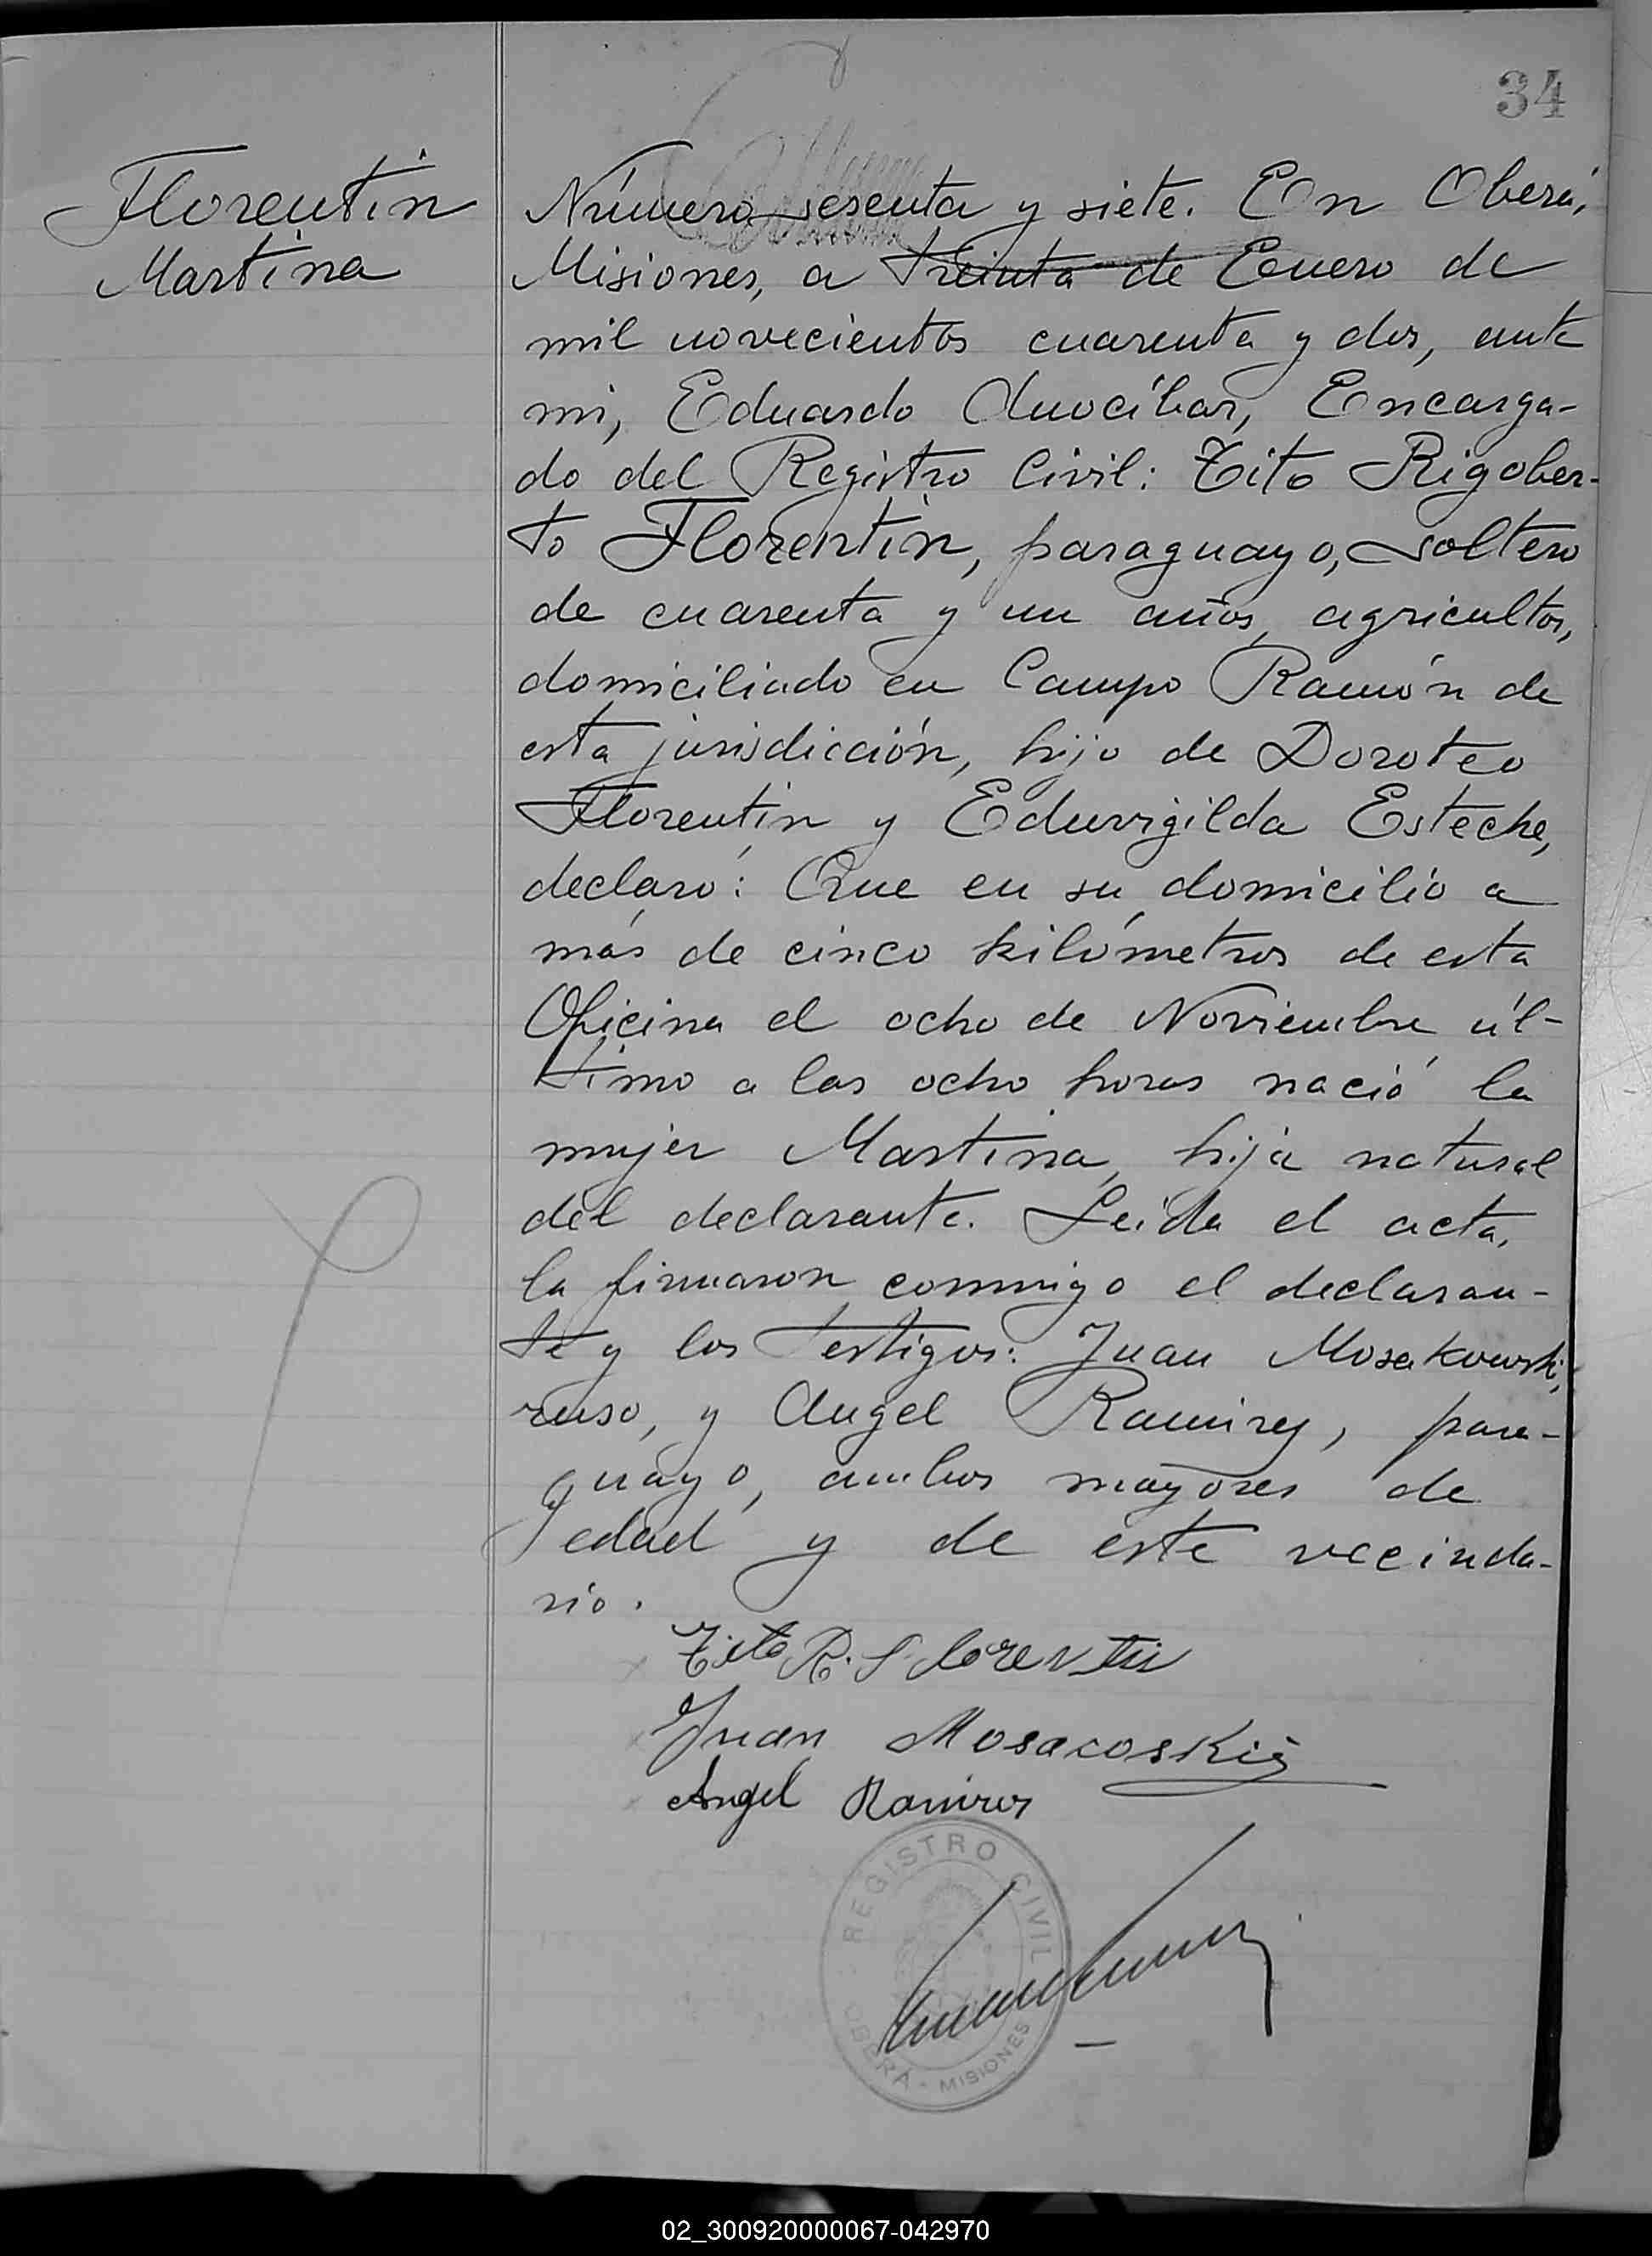 34
Florentin
Martina
Número sesenta y siete. En Oberá,
Misiones, a treinta de Enero de
mil novecientos cuarenta y dos, ante
mi, Eduardo Anocíbar, Encarga-
do del Registro Civil: Tito Rigober-
to Florentin, paraguayo, soltero
de cuarenta y un años, agricultor,
domiciliado en Campo Ramón de
esta jurisdicción, hijo de Doroteo
Florentin y Eduvigilda Esteche,
declaró: Que en su domicilio a
más de cinco kilómetros de esta
Oficina el ocho de Noviembre úl-
timo a las ocho horas nació la
mujer Martina, hija natural
del declarante. Leída el acta,
la firmaron conmigo el declaran-
te y los testigos: Juan Mosakowski,
ruso, y Angel Ramirez, para-
guayo, ambos mayores de
edad y de este vecinda-
rio.
Tito R. Florentin
Juan Mosacoskis
Angel Ramires
REGISTRO CIVIL
OBERÁ - MISIONES
02_300920000067-042970